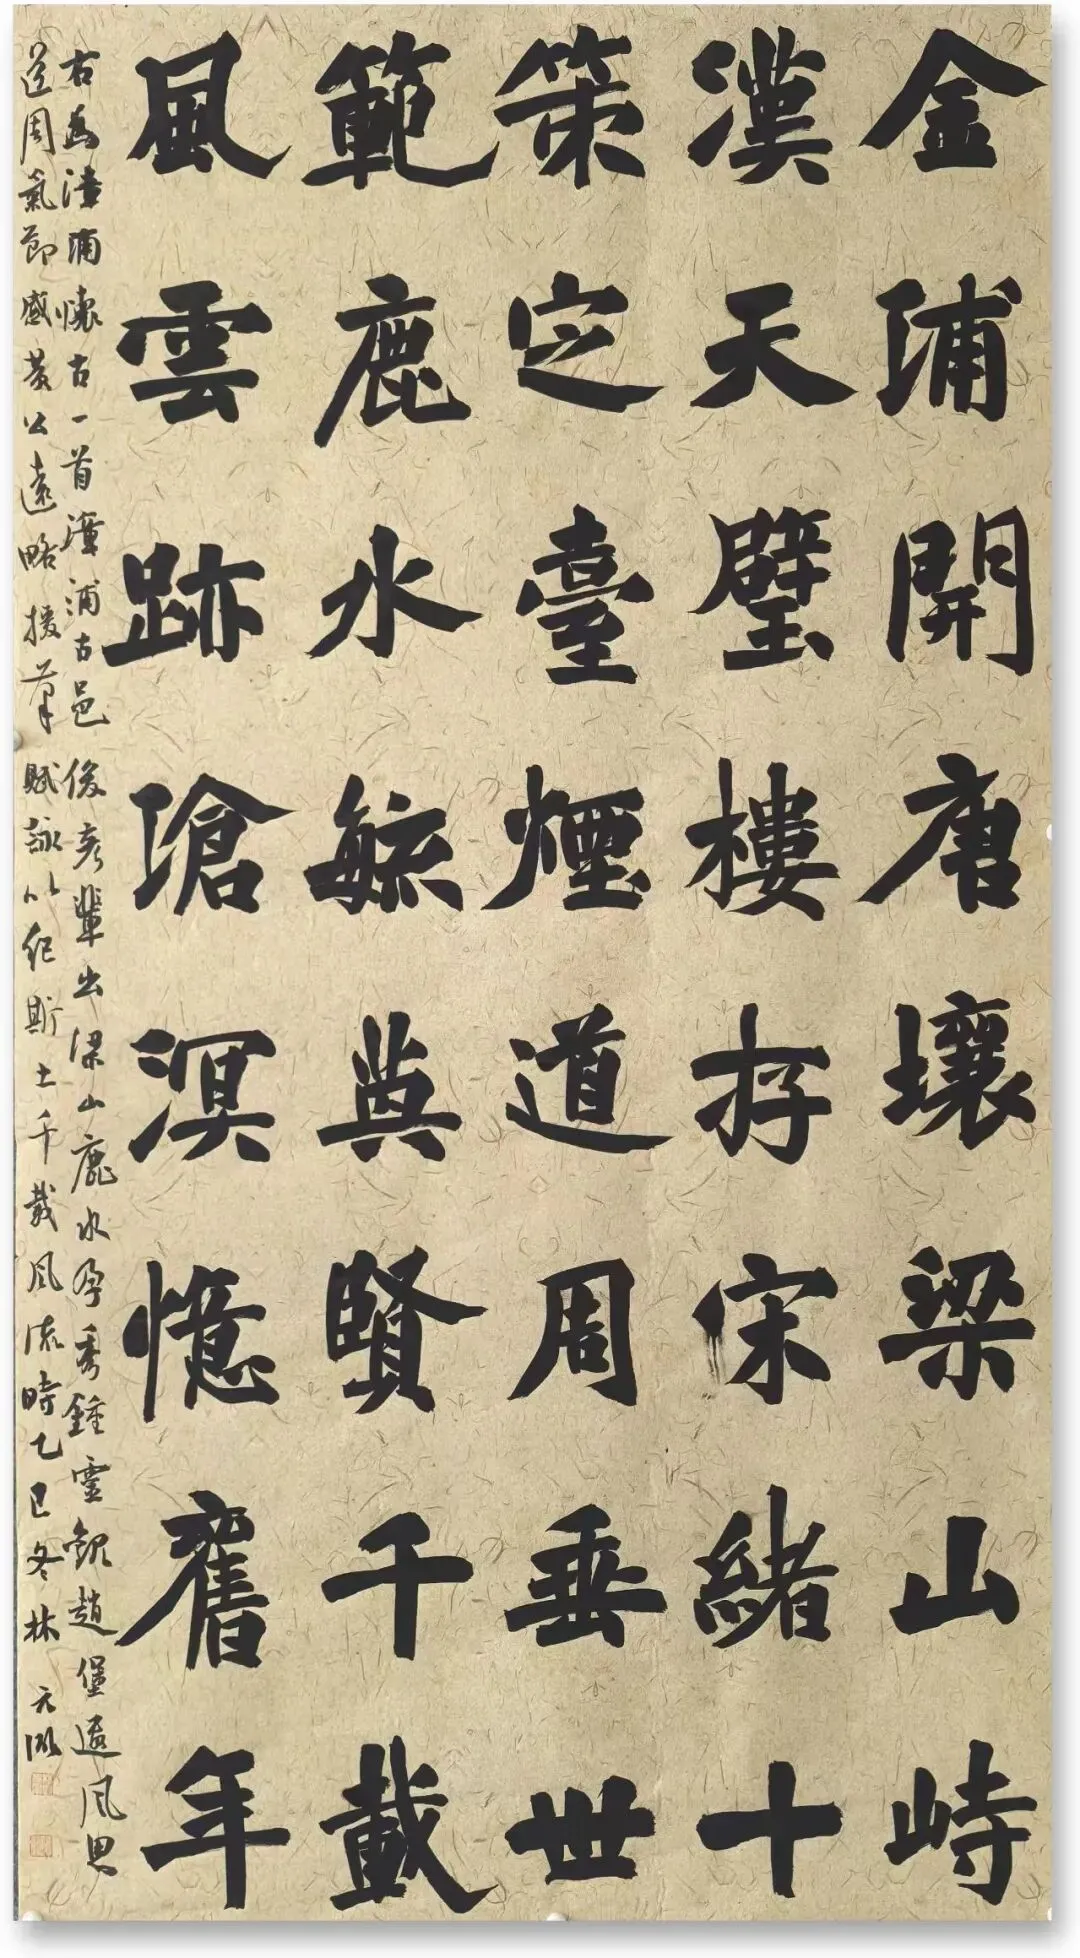 金浦開唐壤梁山峙
漢天璧樓存宋緒十
策定臺煙道周垂世
範鹿水毓英賢千載
風雲跡滄溟憶舊年
右為漳浦懷古一首漳浦古邑俊彥輩出梁山鹿水孕秀鍾靈觀趙堡遺風思
道周氣節感黃公遠略援筆賦詠以紀斯土千載風流時乙巳冬林元